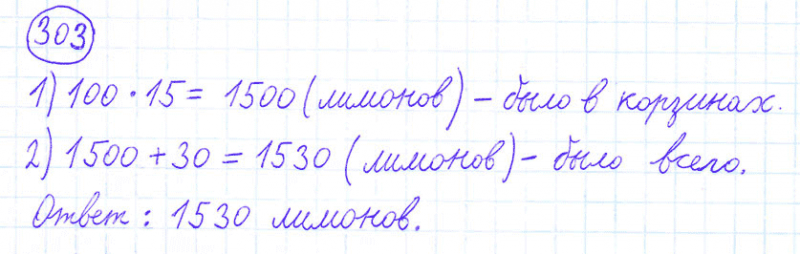 303
1) 100 · 15 = 1500 (лимонов) – было в корзинах.
2) 1500 + 30 = 1530 (лимонов) – было всего.
Ответ : 1530 лимонов.